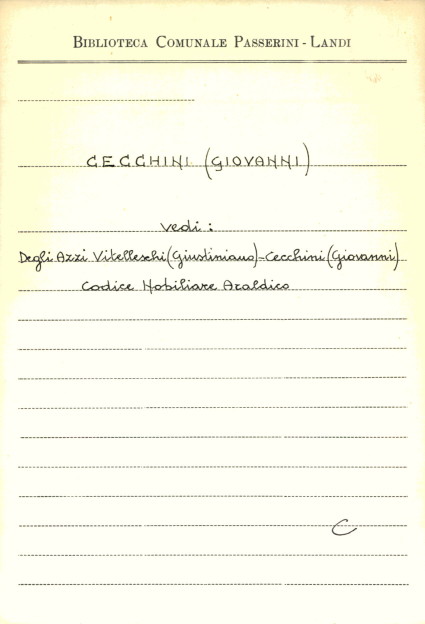 BIBLIOTECA COMUNALE PASSERINI - LANDI
CECCHINI (GIOVANNI)
vedi:
Degli Azzi Vitelleschi (Giustiniano) - Cecchini (Giovanni)
Codice Nobiliare Araldico
C